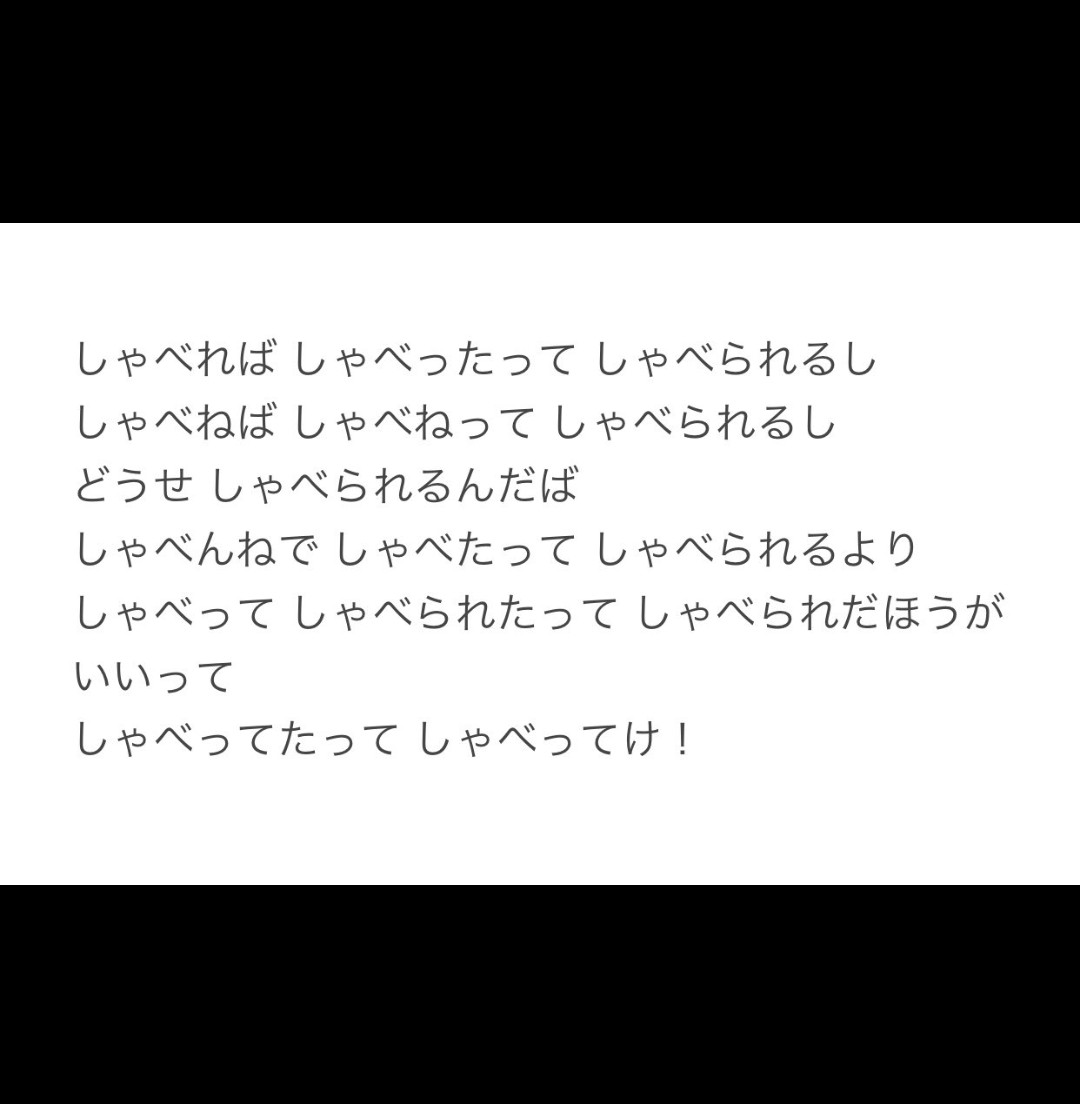 しゃべれば しゃべったって しゃべられるし
しゃべねば しゃべねって しゃべられるし
どうせ しゃべられるんだば
しゃべんねで しゃべたって しゃべられるより
しゃべって しゃべられたって しゃべられだほうが
いいって
しゃべってたって しゃべってけ！